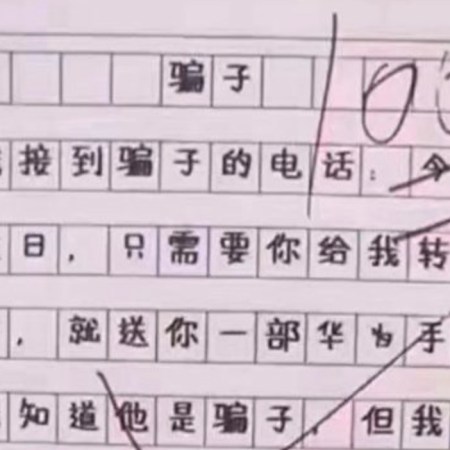 骗子
100
接到骗子的电话：今
日，只需要你给我转
，就送你一部华为手
知道他是骗子，但我